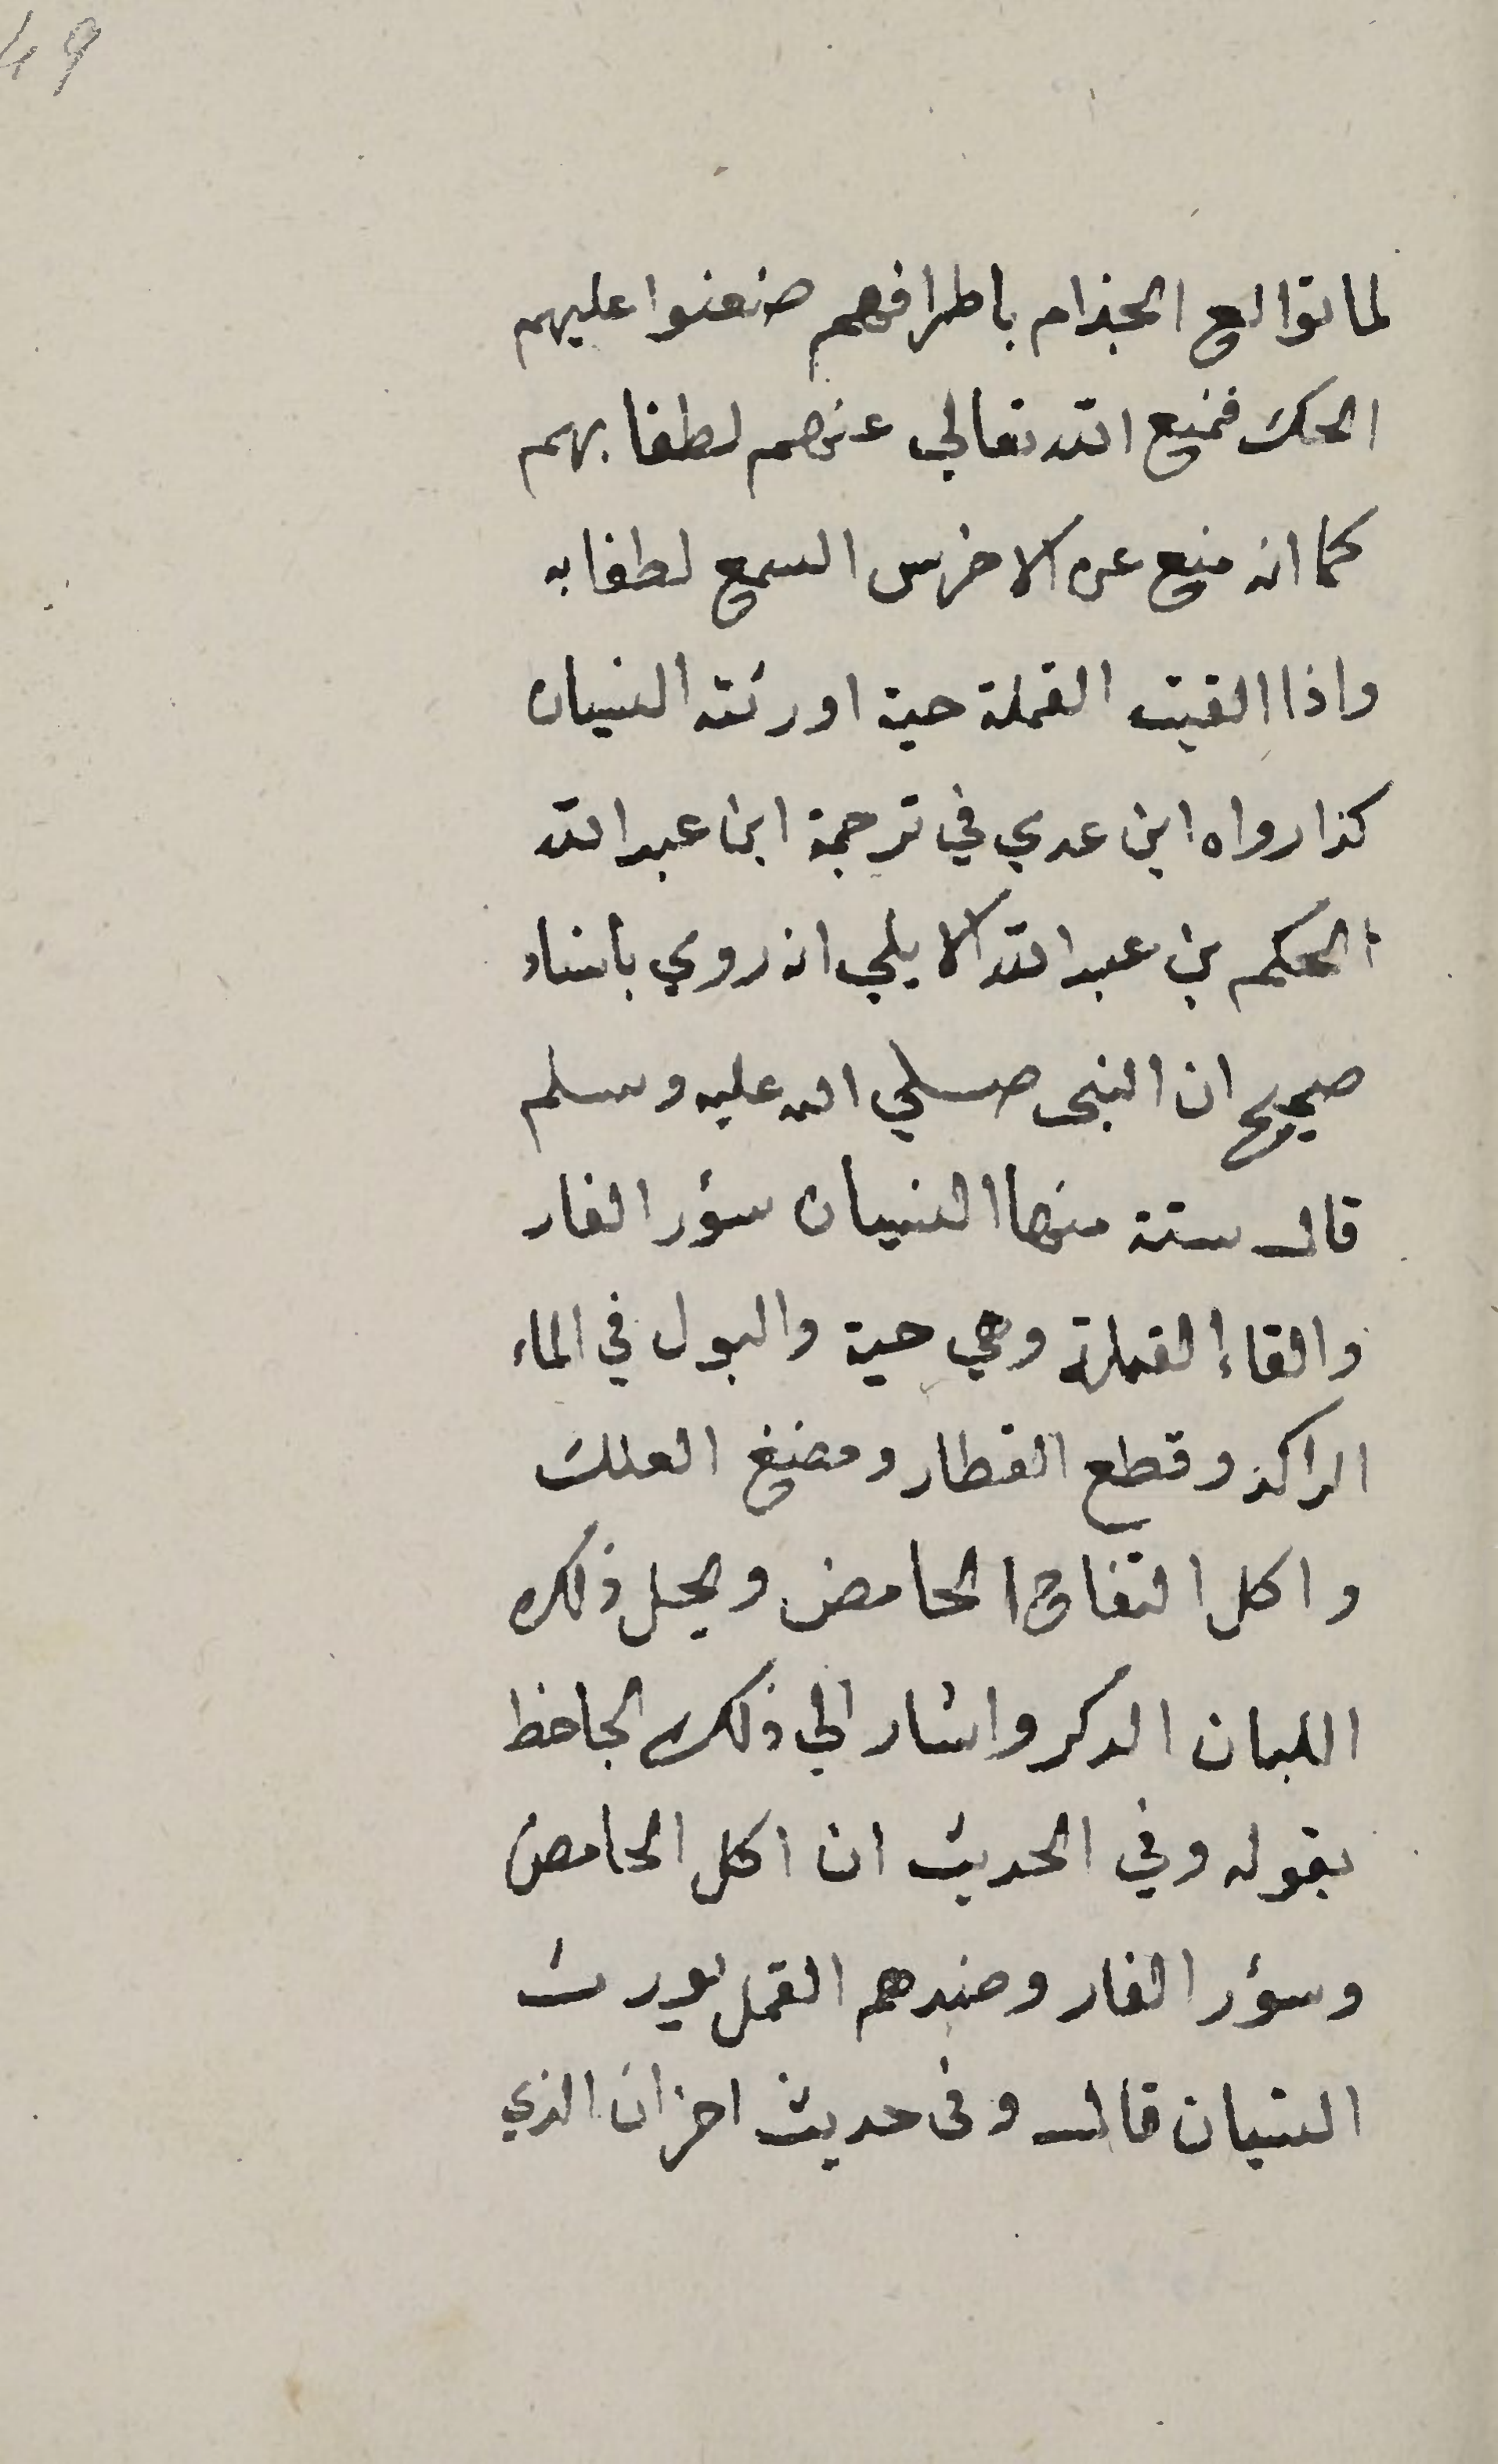 49
لما توالع الجذام باطرافهم صنعنوا عليهم
الحك فمنع الله تعالي عنهم لطفا بهم
كما انه منع عن الاخرس السمع لطفا به
واذا القيت القملة حية اورثته النسيان
كذا رواه ابن عدي في ترجمة ابن عبد الله
الحكم بن عبد الله الايلي انه روي باسناد
صحيح ان النبى صلي الله عليه وسلم
قال ستة منها النسيان سؤر الفار
والقاء القملة وهي حية والبول في الماء
الراكد وقطع القطار ومضغ العلك
واكل التفاح الحامض ويحل ذلك
اللبان الدكر واشار الي ذلك الجاحظ
بقوله وفي الحديث ان اكل الحامض
وسؤر الفار وصندهم القمل يورث
النسيان قال وفى حديث اخر ان الذي